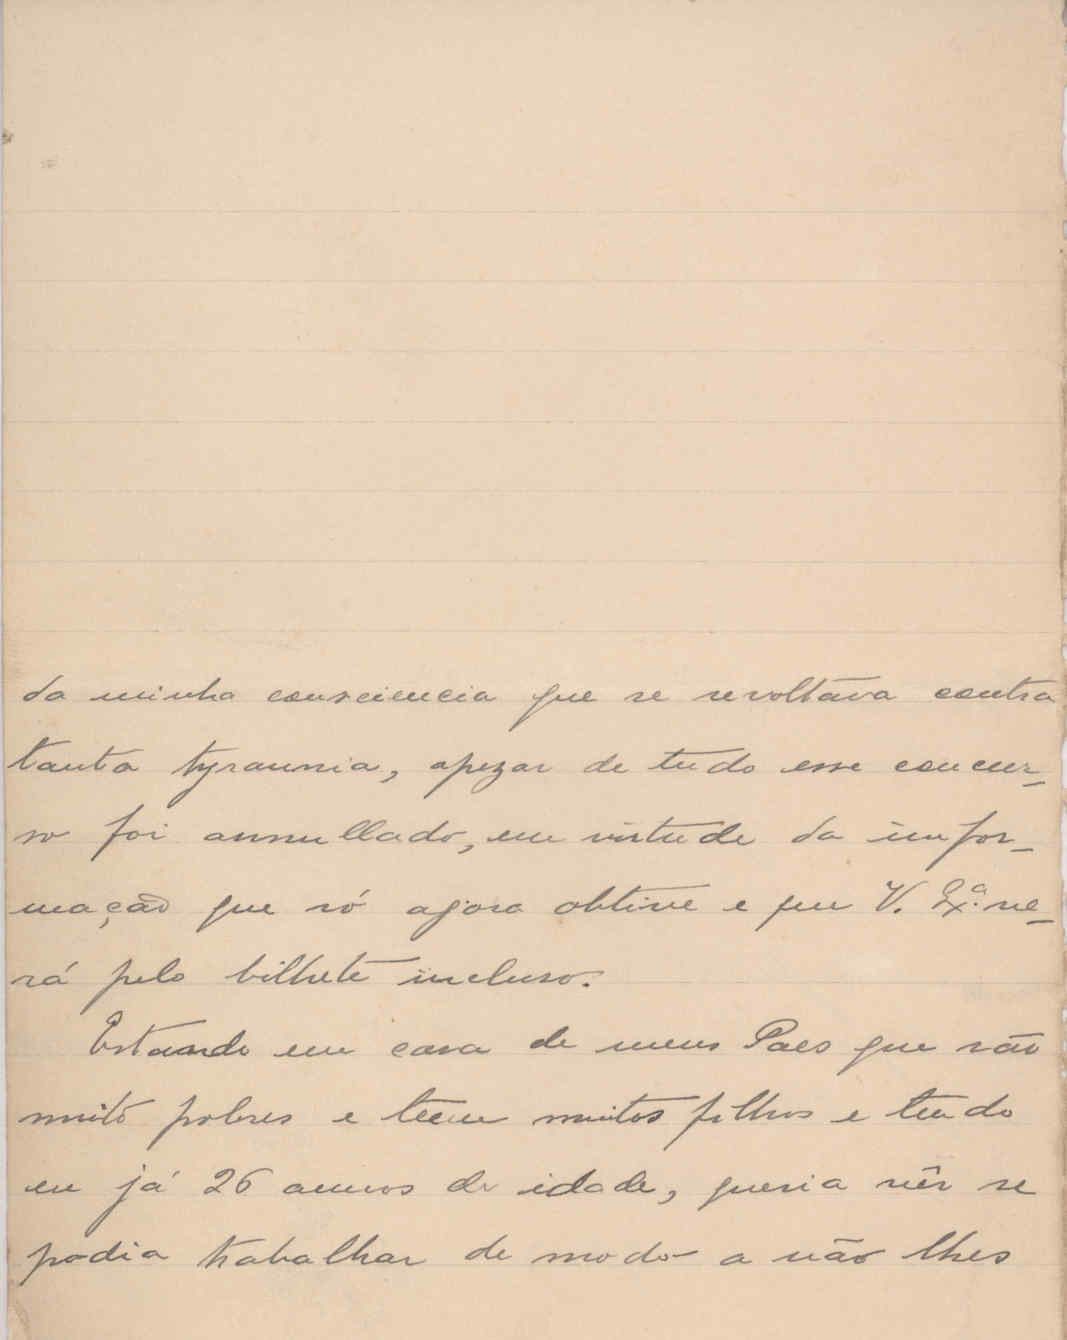 da minha consciencia que se revoltava contra
tanta tyrannia, apezar de tudo esse concur-
so foi annullado, em virtude da infor-
mação que só agora obtive e que V. Exª. ve-
rá pelo bilhete incluso.
Estando em casa de meus Paes que são
muito pobres e teem muitos filhos e tendo
eu já 26 annos de idade, queria vêr se
podia trabalhar de modo a não lhes